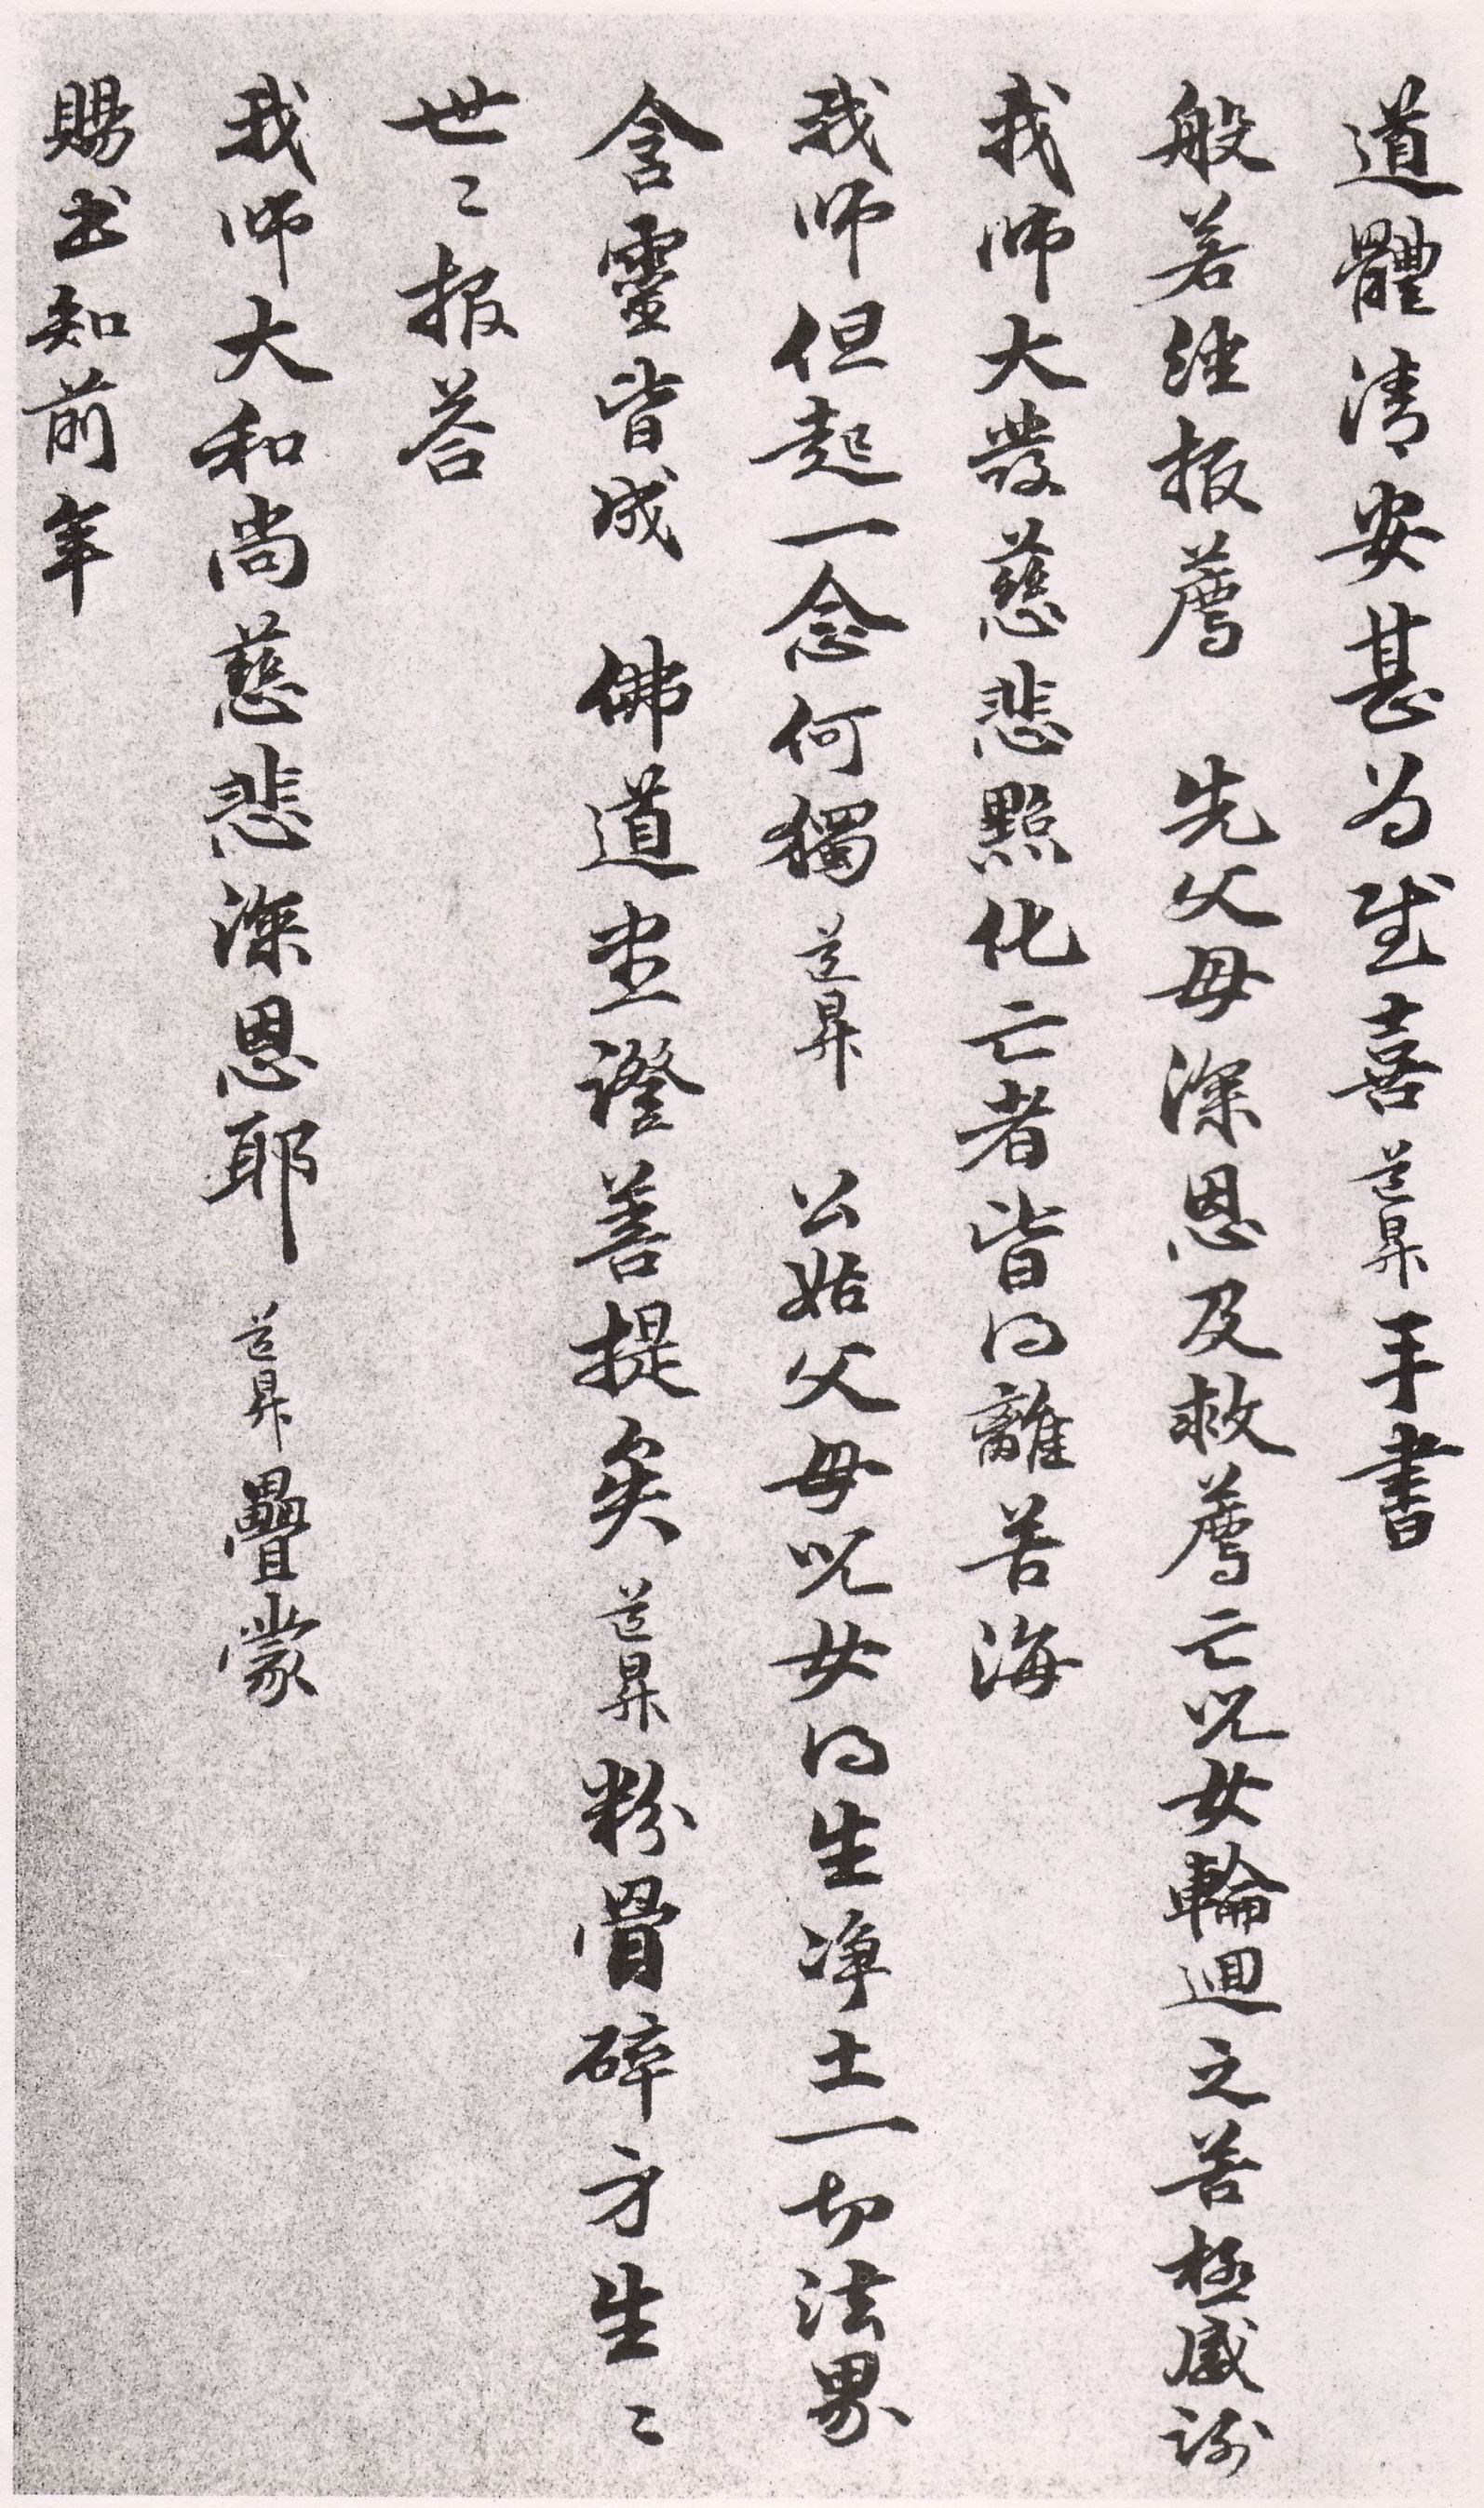 道體清安甚為喜道昇手書
般若經報薦　先父母深恩及救薦亡兒女輪迴之苦極感謝
我師大發慈悲點化亡者皆得離苦海
我師但起一念何獨道昇　公姑父母兒女得生淨土一切法界
含靈皆成　佛道盡證菩提矣道昇粉骨碎身生〻
世〻報答
我師大和尚慈悲深恩耶　道昇疊蒙
賜書知前年